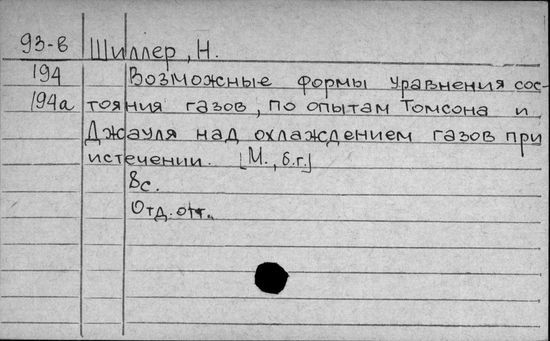 93-в Шиллер, Н.
194 Возможные формы уравнения сос-
194а тояния газов, по опытам Томсона и
Джауля над охлаждением газов при
истечении. [М., б.г.]
8с.
Отд. отт.